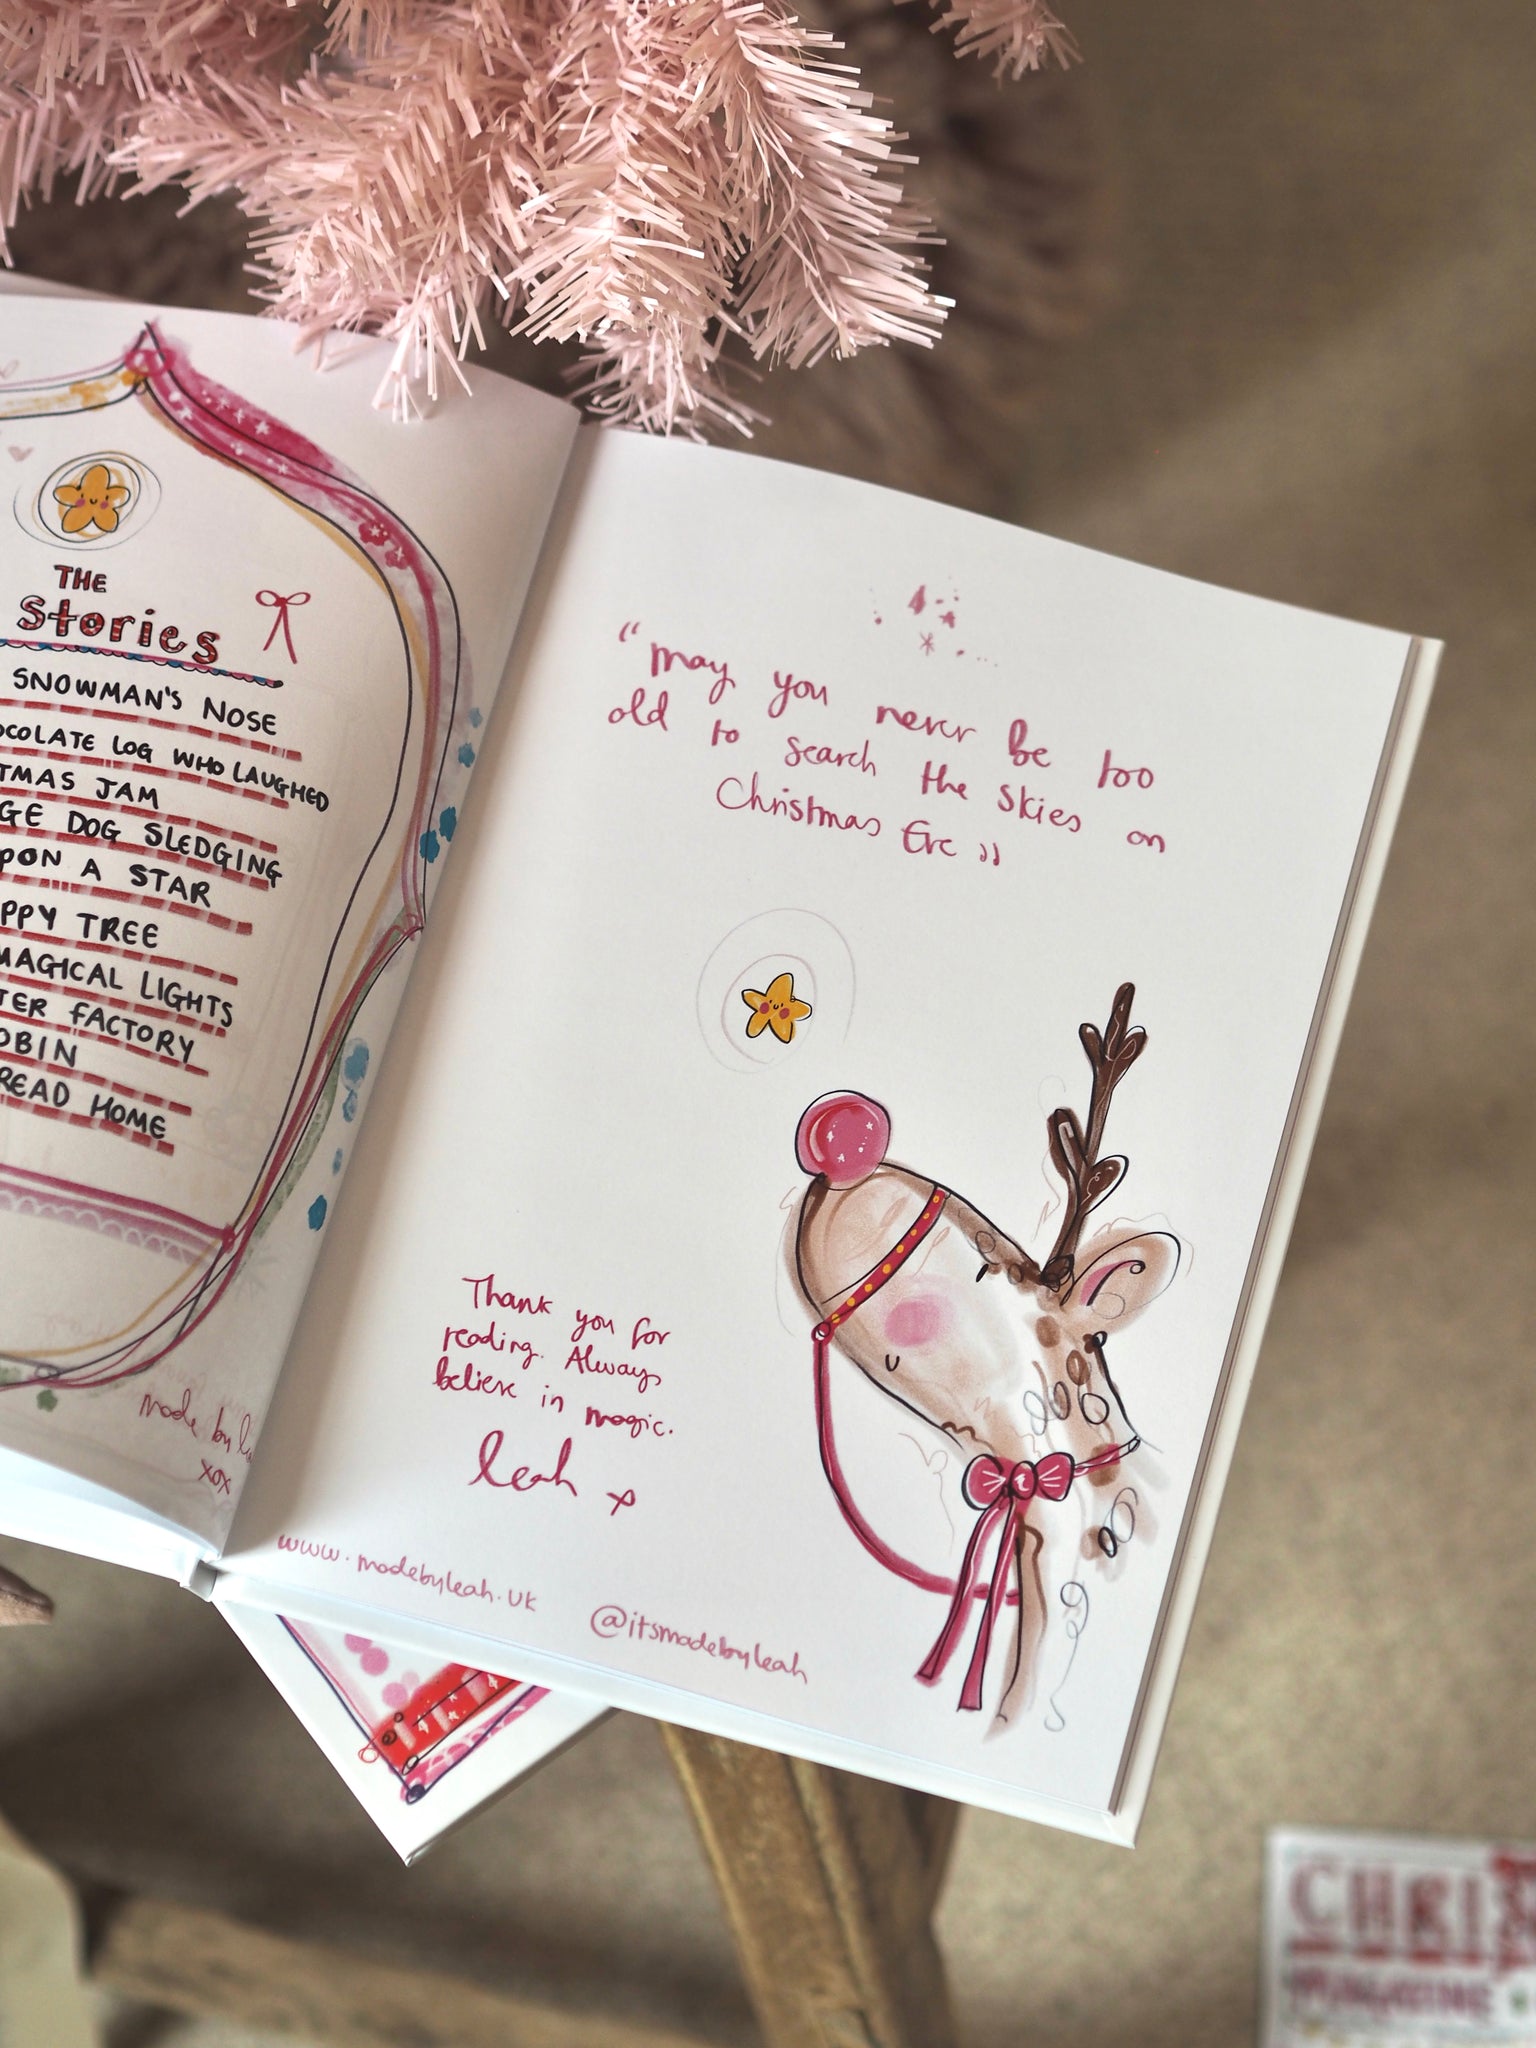 THE
Stories
SNOWMAN'S NOSE
LOG WHO LAUGHED
JAM
DOG SLEDGING
A STAR
TREE
MAGICAL LIGHTS
FACTORY
HOME
made by
xox
"may you never be too
old to search the skies on
Christmas Eve"
Thank you for
reading. Always
believe in magic.
Leah x
www.madebyleah.uk
@itsmadebyleah
MAGAZINE